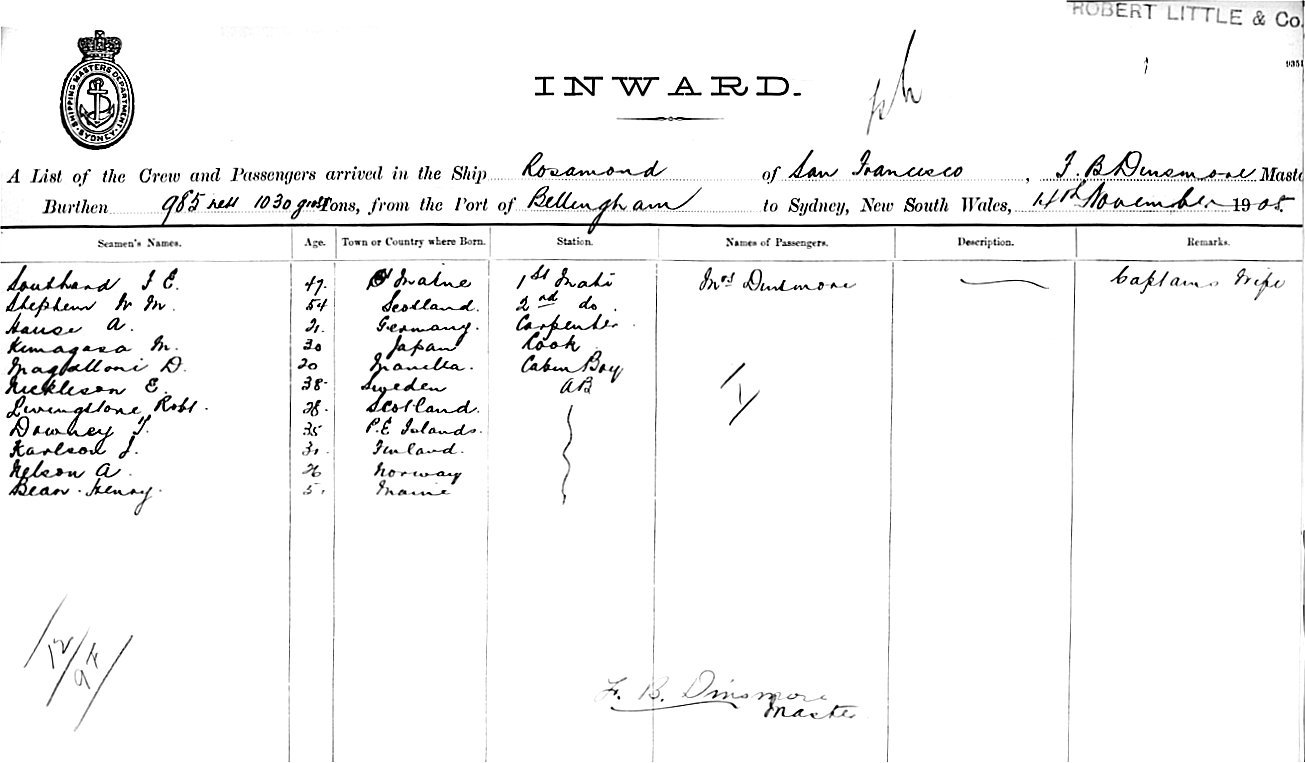 ROBERT LITTLE & Co.
SHIPPING MASTERS DEPARTMENT
SYDNEY
INWARD.
9351
A List of the Crew and Passengers arrived in the Ship Rosamond of San Francisco, F. B Dinsmore Maste
Burthen 985 nett 1030 gross Tons, from the Port of Bellingham to Sydney, New South Wales, 4th November 1908.
Seamen's Names. Age. Town or Country where Born. Station. Names of Passengers. Description. Remarks.
Southard F E. 47. Maine 1st Mate Mrs Dinsmore Captains Wife
Stephen W M. 54 Scotland. 2nd do.
Hause A. 21. Germany. Carpenter.
Kimagasa M. 30 Japan Cook
Magattoni D. 20 Manilla. Cabin Boy
Nickleson E. 38. Sweden AB
Livingstone Robt. 28. Scotland.
Downey T. 35 P.E Islands.
Karlson J. 31. Finland.
Nelson A. 26 Norway
Bean Henry. 51 Maine
12
94
F. B. Dinsmore
Master